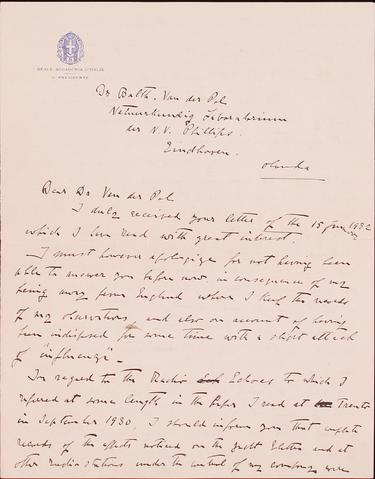 REALE ACCADEMIA D'ITALIA
IL PRESIDENTE
Dr Balth. Van der Pol
Natuurkundig Laboratorium
der N.V. Phillips.
Eindhoven.
Olanda
Dear Dr Van der Pol
I duly received your letter of the 15 1932
which I have read with great interest.
I must however apologize for not having been
able to answer you before now in consequence of my
being away from England where I keep the records
of my observations, and also on account of having
been indisposed for some time with a slight attack
of "influenza".
In regard to the Radio Echoes to which I
refered at some length in the paper I read at Trento
in September 1930, I should inform you that complete
records of the effects noticed on the Yacht Elettra and at
other radio stations under the control of my company were